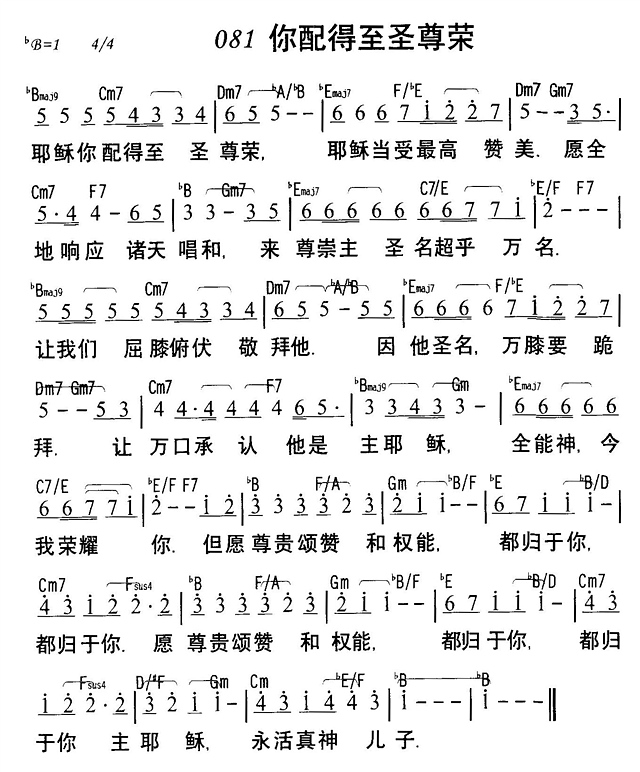 ♭B=1 4/4 081 你配得至圣尊荣
♭Bmaj9 Cm7 Dm7 ♭A/♭B ♭Emaj7 F/♭E Dm7 Gm7
5 5 5 5 4 3 3 4 | 6 5 5 - - | 6 6 6 7 i 2 2 7 | 5 - - 3 5 · |
耶稣你配得至 圣 尊荣, 耶稣当受最高 赞 美. 愿全
Cm7 F7 ♭B Gm7 ♭Emaj7 C7/E ♭E/F F7
5 · 4 4 - 6 5 | 3 3 - 3 5 | 6 6 6 6 6 6 6 7 7 i | 2 - - - |
地响应 诸天 唱和, 来 尊崇主 圣 名超乎 万 名.
♭Bmaj9 Cm7 Dm7 ♭A/♭B ♭Emaj7 F/♭E
5 5 5 5 5 4 3 3 4 | 6 5 5 - 5 5 | 6 6 6 6 6 7 i 2 2 7 |
让我们 屈膝俯伏 敬 拜他. 因 他圣名, 万膝要 跪
Dm7 Gm7 Cm7 F7 ♭Bmaj9 Gm ♭Emaj7
5 - - 5 3 | 4 4 · 4 4 4 4 6 5 · | 3 3 4 3 3 | 6 6 6 6 6 |
拜. 让 万口承 认 他是 主耶 稣, 全能神, 今
C7/E ♭E/F F7 ♭B F/A Gm ♭B/F ♭E ♭B/D
6 6 7 7 i | 2 - - i 2 | 3 3 3 3 2 3 | 2 i i - - | 6 7 i i - - |
我荣耀 你. 但愿 尊贵颂赞 和权能, 都归于你,
Cm7 Fsus4 ♭B F/A Gm ♭B/F ♭E ♭B/D Cm7
4 3 i 2 2 · 2 | 3 3 3 3 2 3 | 2 i i - - | 6 7 i i - - | 4 3
都归于你. 愿 尊贵颂赞 和 权能, 都归 于你, 都归
Fsus4 D/♯F Gm Cm ♭E/F ♭B ♭B
i 2 2 · 2 | 2 i i - - | 4 3 i 4 4 3 | i - - - | i - - - ‖
于你 主 耶 稣, 永活真神 儿 子.